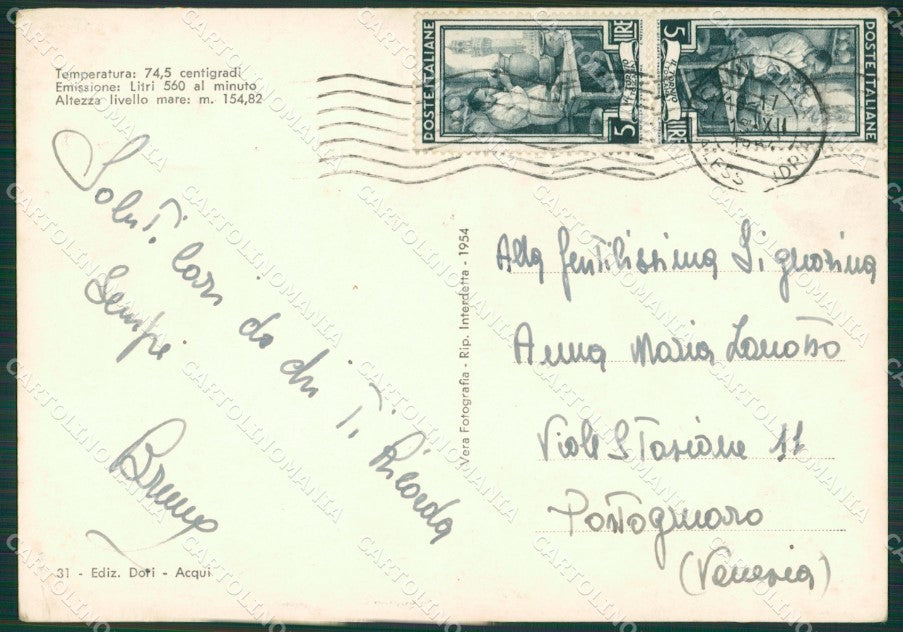 Temperatura: 74,5 centigradi
Emissione: Litri 560 al minuto
Altezza livello mare: m. 154,82
POSTE ITALIANE
5
LIRE
5
LIRE
POSTE ITALIANE
Saluti Cari da chi Ti Ricorda
Sempre
Bruno
Vera Fotografia - Rip. Interdetta - 1954
Alla Gentilissima Signorina
Anna Maria Zanotto
Viale Stazione 11
Portogruaro
(Venezia)
31 - Ediz. Dori - Acqui
CARTOLINOMANIA